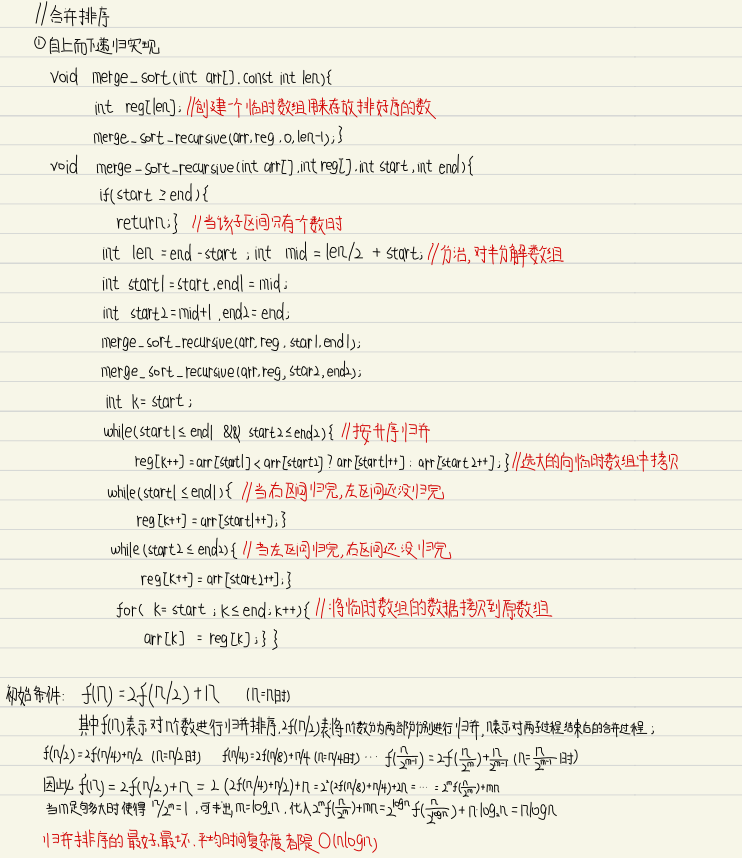 //合并排序
①自上而下递归实现
void merge_sort(int arr[],const int len){
int reg[len]; //创建一个临时数组用来存放排好序的数
merge_sort_recursive(arr,reg,0,len-1);}
void merge_sort_recursive(int arr[],int reg[],int start,int end){
if(start≥end){
return;} //当该子区间只有个数时
int len =end-start ;int mid =len/2 +start; //分治,对半分解数组
int start1=start,end1=mid;
int start2=mid+1 ,end2=end;
merge_sort_recursive(arr,reg,star1,end1);
merge_sort_recursive(arr,reg,star2,end2);
int k=start;
while(start1≤end1 && start2≤end2){ //按升序归并
reg[k++]=arr[start1]<arr[start2]?arr[start1++]:arr[start2++];} //选大的向临时数组中拷贝
while(start1≤end1){ //当右区间归完,左区间还没归完
reg[k++]=arr[start1++];}
while(start2≤end2){ //当左区间归完,右区间还没归完
reg[k++]=arr[start2++];}
for( k=start ;k≤end;k++){ //将临时数组的数据拷贝到原数组
arr[k] =reg[k];}}
初始条件: f(n)=2f(n/2)+n (n=n时)
其中f(n)表示对n个数进行归并排序,2f(n/2)表将n个数分为两部分分别进行归并,n表示对两子过程结束后的合并过程;
f(n/2)=2f(n/4)+n/2 (n=n/2时) f(n/4)=2f(n/8)+n/4 (n=n/4时) ··· f(n/2^(m-1))=2f(n/2^m)+n/2^(m-1) (n=n/2^(m-1)时)
因此 f(n)=2f(n/2)+n=2(2f(n/4)+n/2)+n=2²(2f(n/8)+n/4)+2n=···=2^m f(n/2^m)+mn
当m足够大时使得n/2^m=1,可求出m=log₂n,代入2^m f(n/2^m)+mn=2^(logn) f(n/2^(logn))+n·log₂n=nlogn
归并排序的最好,最坏,平均时间复杂度都是O(nlogn)